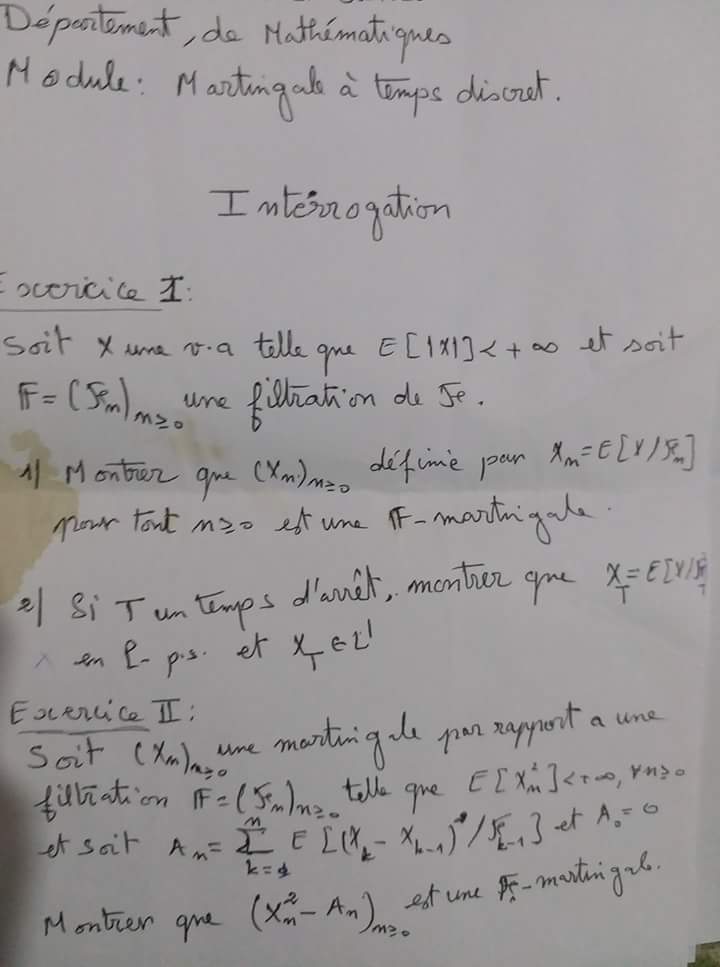 Département, de Mathématiques
Module: Martingale à temps discret.
Intérrogation
Exercice I:
Soit X une v.a telle que E[|X|] < +∞ et soit
𝔽 = (ℱn)n≥0 une filtration de ℱ.
1) Montrer que (Xn)n≥0 définie par Xn = E[X/ℱn]
pour tout n≥0 est une 𝔽-martingale.
2) Si T un temps d'arrêt, montrer que X_T = E[X/ℱ_T
en P- p.s. et X_T ∈ L¹
Exercice II:
Soit (Xn)n≥0 une martingale par rapport a une
filtration 𝔽 = (ℱn)n≥0 telle que E[Xn²] < +∞, ∀n≥0
et soit An = Σ_{k=1}^{n} E[(X_k - X_{k-1})²/ℱ_{k-1}] et A₀ = 0
Montrer que (Xn² - An)n≥0 est une 𝔽-martingale.